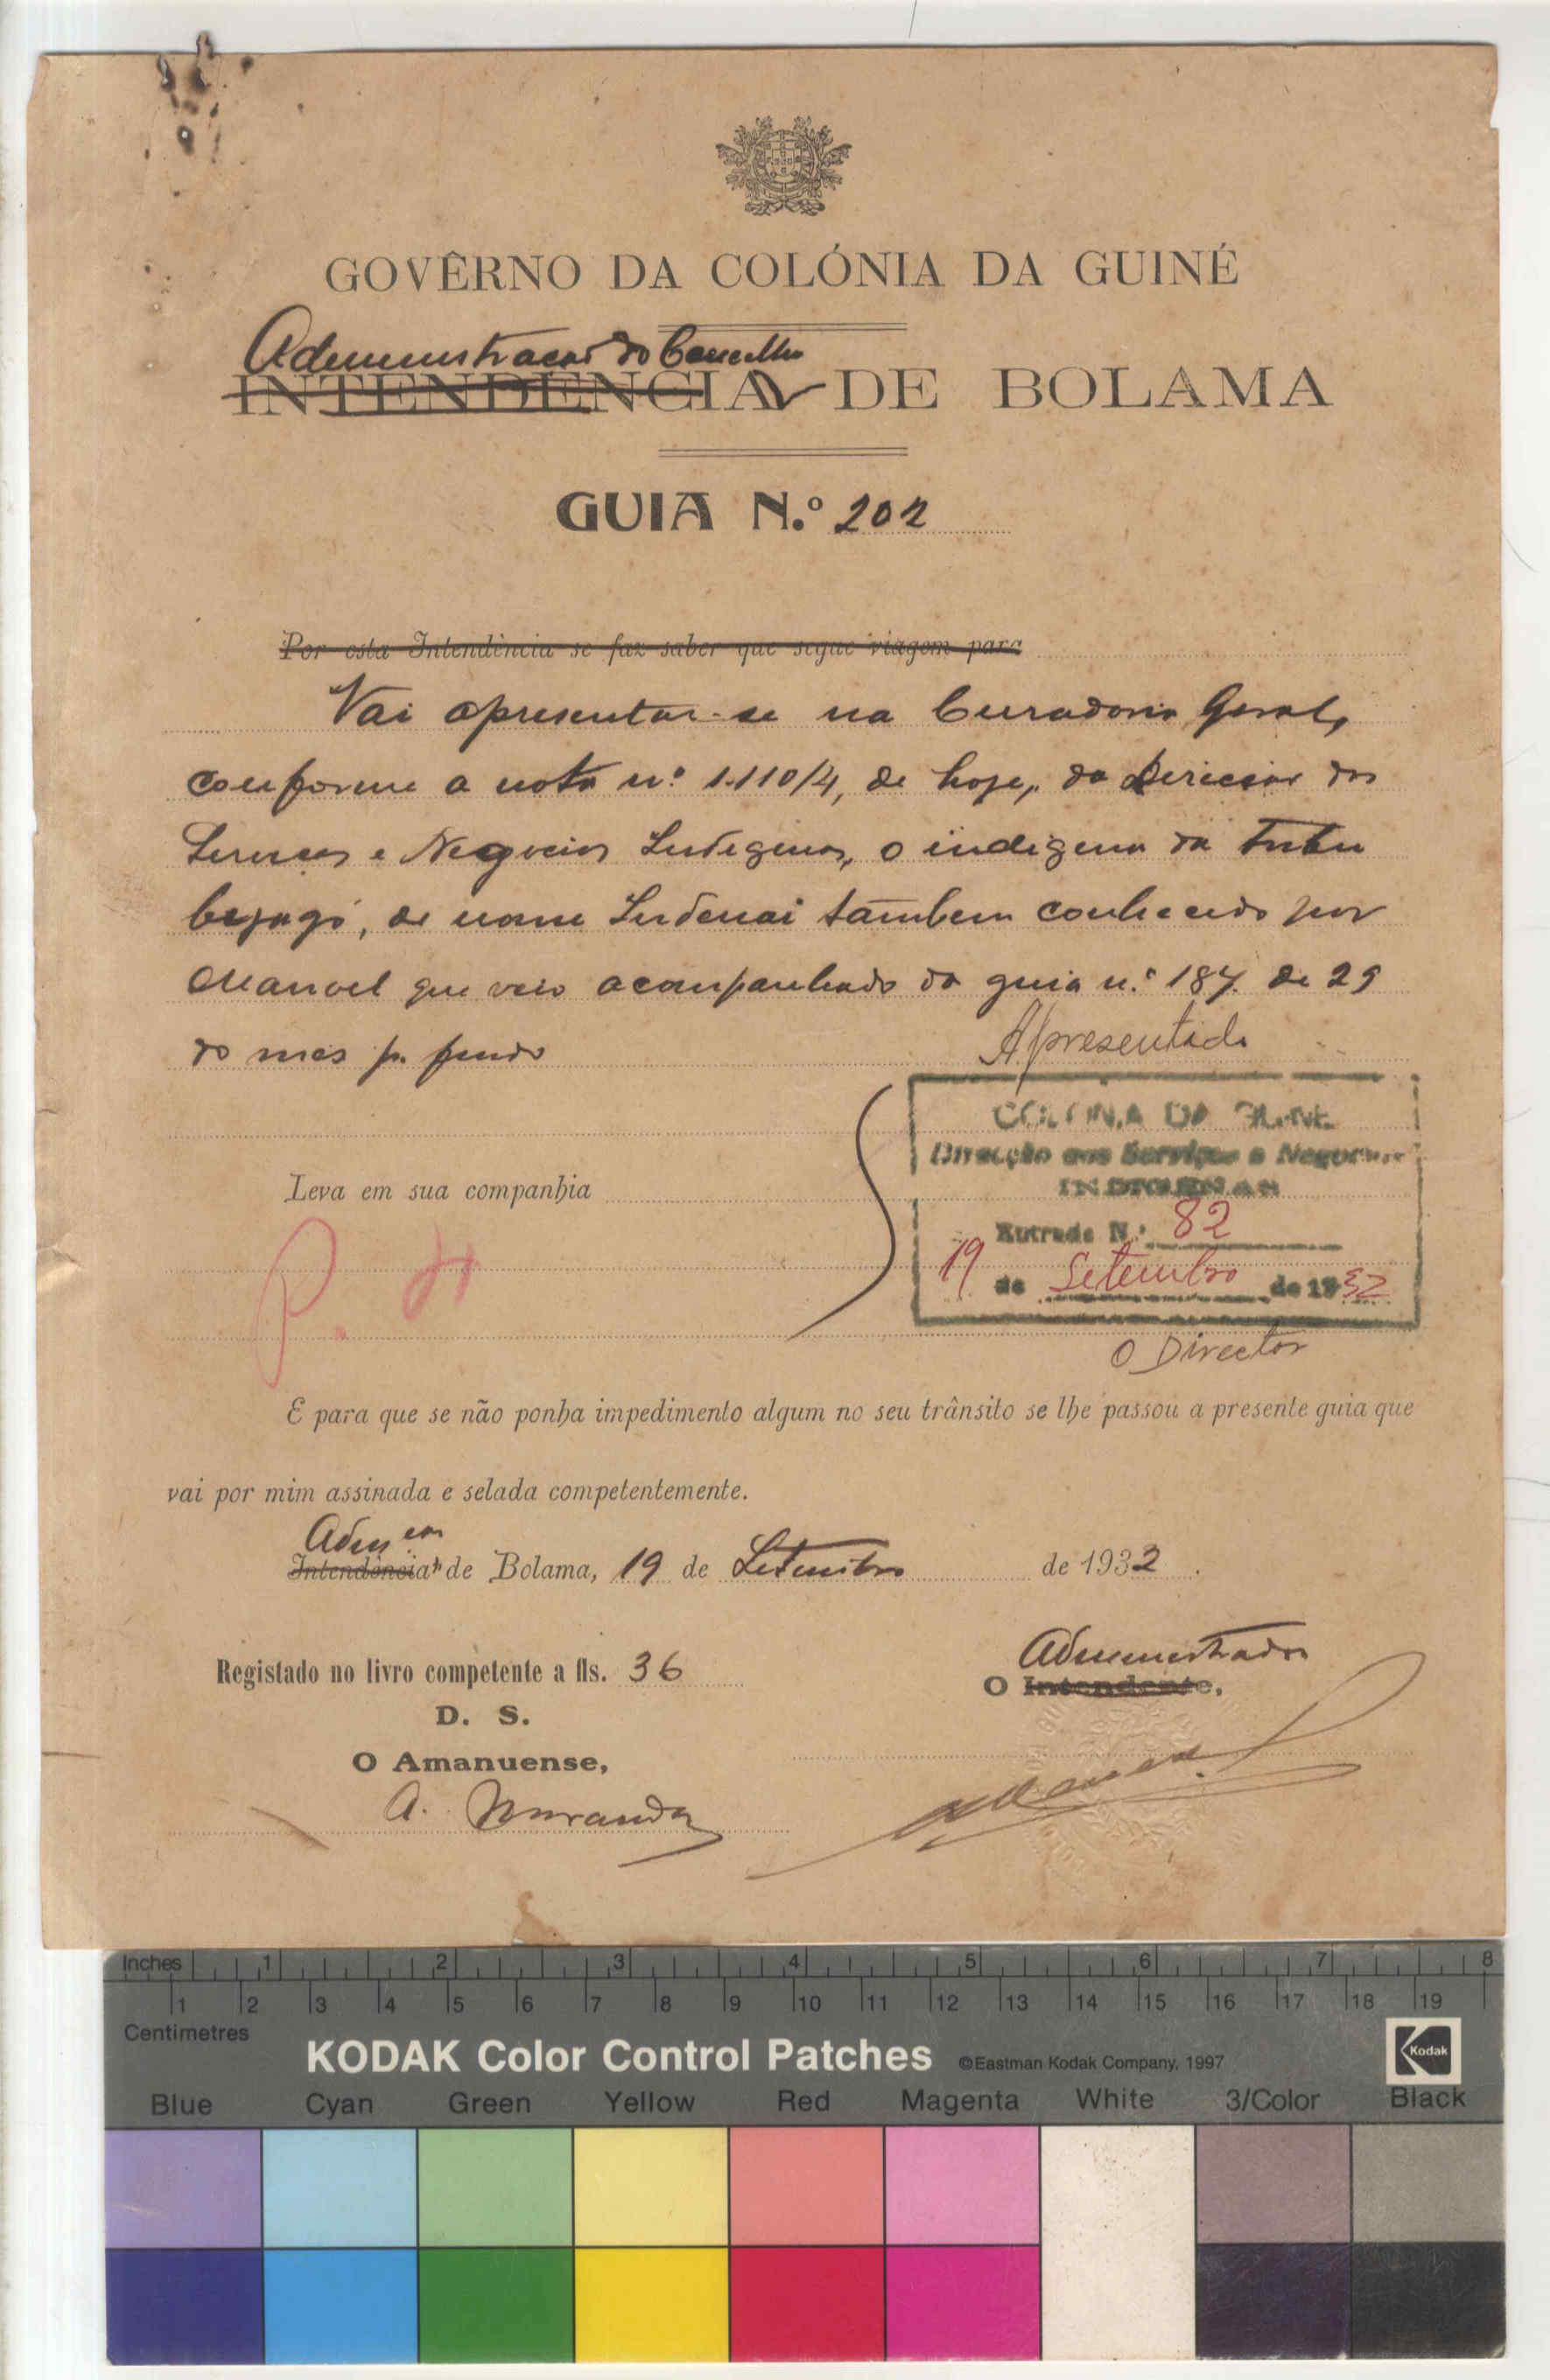 GOVÊRNO DA COLÓNIA DA GUINÉ
Administração do Concelho
INTENDENCIA DE BOLAMA
GUIA N.º 202
Por esta Intendência se faz saber que segue viagem para
Vai apresentar-se na Curadoria Geral,
conforme a nota n.º 1.110/4, de hoje, da Direcção dos
Serviços e Negocios Indigenas, o indigena da tribu
bijagó, de nome Indenai tambem conhecido por
Manoel que veio acompanhado da guia n.º 187 de 29
do mês p. findo
Apresentado
COLONIA DA GUINÉ
Direcção dos Serviços e Negocios
INDIGENAS
Entrada N.º 82
19 de Setembro de 1932
Leva em sua companhia
O Director
E para que se não ponha impedimento algum no seu trânsito se lhe passou a presente guia que
vai por mim assinada e selada competentemente.
Adm.ção
Intendência de Bolama, 19 de Setembro de 1932.
Administrador
Registado no livro competente a fls. 36
O Intendente,
D. S.
O Amanuense,
A. Miranda
Inches 1 2 3 4 5 6 7 8
1 2 3 4 5 6 7 8 9 10 11 12 13 14 15 16 17 18 19
Centimetres
KODAK Color Control Patches ©Eastman Kodak Company, 1997 Kodak
Blue Cyan Green Yellow Red Magenta White 3/Color Black